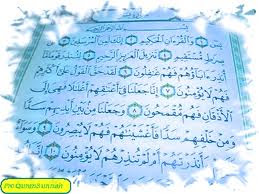 بِسْمِ اللَّهِ الرَّحْمَٰنِ الرَّحِيمِ
وَالْقُرْءَانِ الْحَكِيمِ ۝ إِنَّكَ لَمِنَ الْمُرْسَلِينَ ۝
صِرَاطٍ مُسْتَقِيمٍ ۝ تَنزِيلَ الْعَزِيزِ الرَّحِيمِ ۝ لِتُنذِرَ
أُنذِرَ ءَابَاؤُهُمْ فَهُمْ غَافِلُونَ ۝ لَقَدْ حَقَّ الْقَوْلُ عَلَىٰ أَكْثَرِهِمْ
فَهُمْ لَا يُؤْمِنُونَ ۝ إِنَّا جَعَلْنَا فِي أَعْنَاقِهِمْ أَغْلَالًا فَهِيَ
الْأَذْقَانِ فَهُم مُّقْمَحُونَ ۝ وَجَعَلْنَا مِن بَيْنِ أَيْدِيهِمْ سَدًّا
وَمِنْ خَلْفِهِمْ سَدًّا فَأَغْشَيْنَاهُمْ فَهُمْ لَا يُبْصِرُونَ ۝ وَسَوَاءٌ
ءَأَنذَرْتَهُمْ أَمْ لَمْ تُنذِرْهُمْ لَا يُؤْمِنُونَ ۝
Pro Quran & Sunnah